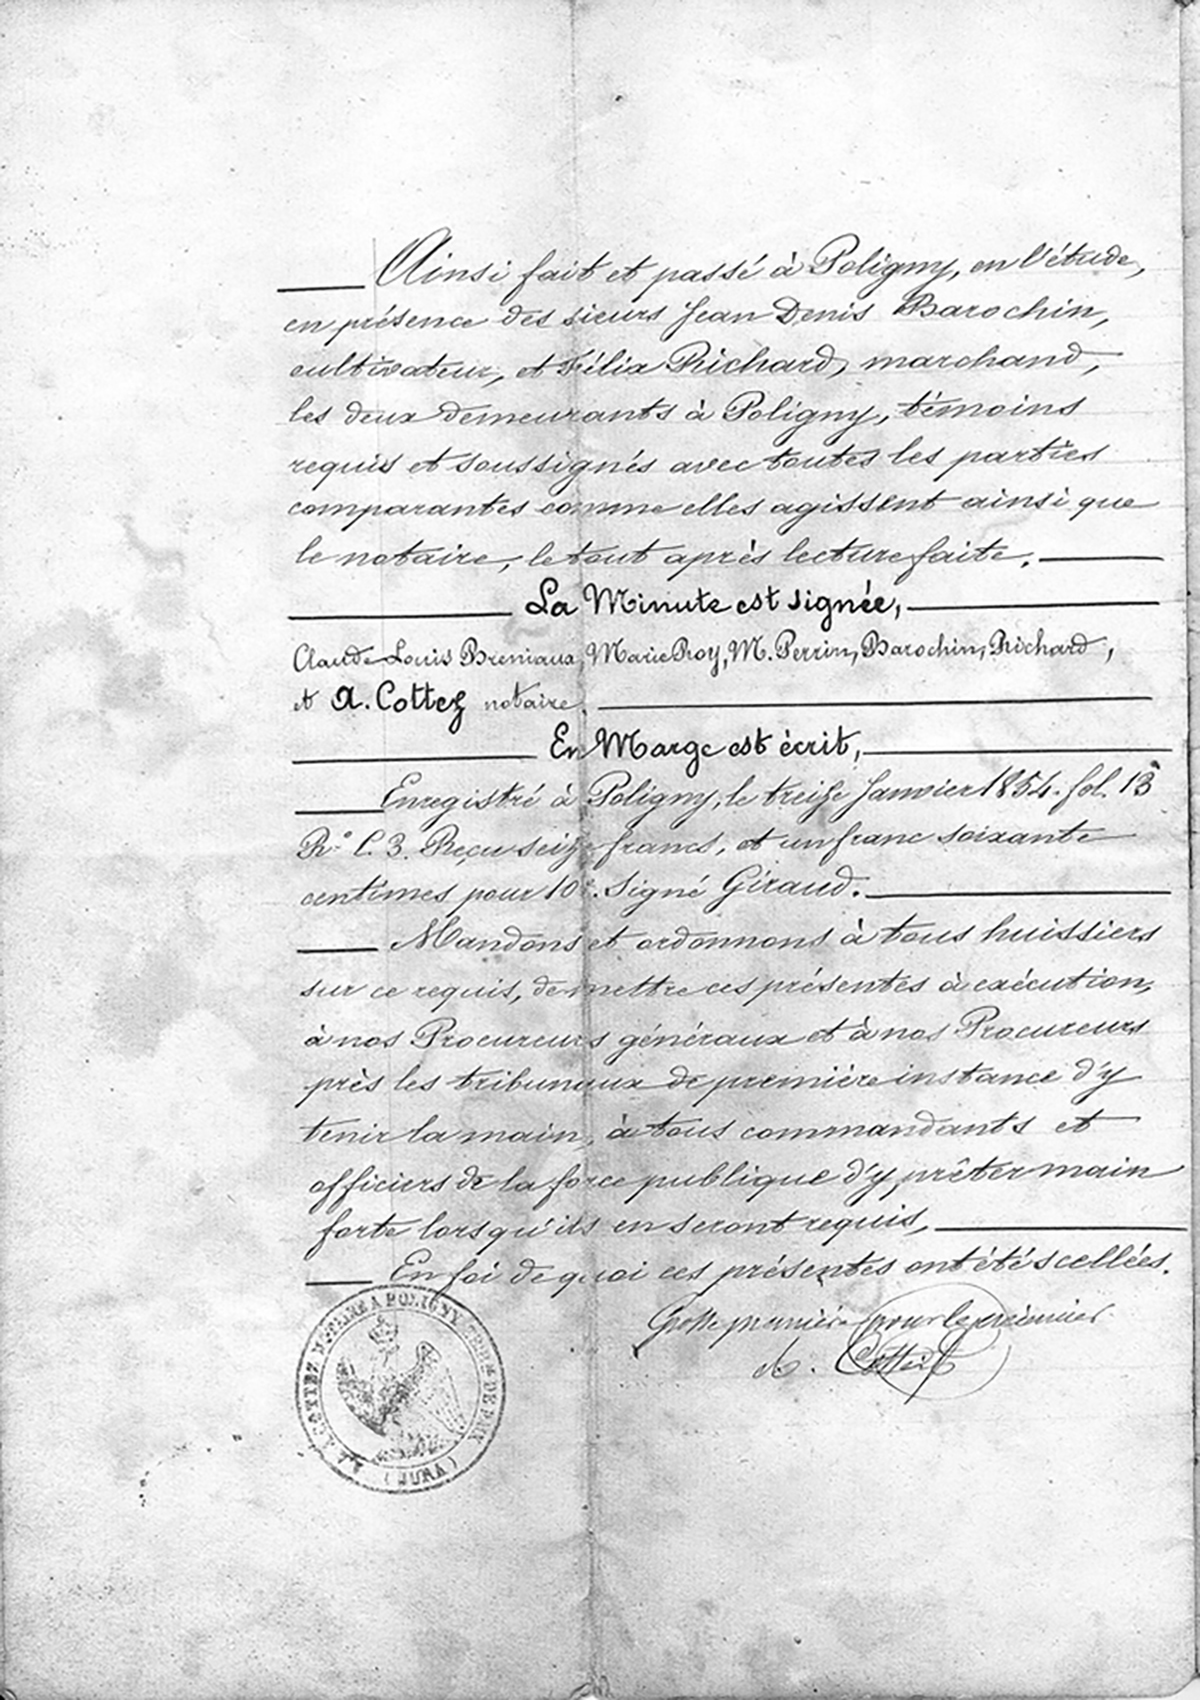 Ainsi fait et passé à Poligny, en l'étude,
en présence des sieurs Jean Denis Barochin,
cultivateur, et Félix Richard, marchand,
les deux demeurants à Poligny, témoins
requis et soussignés avec toutes les parties
comparantes comme elles agissent ainsi que
le notaire, le tout après lecture faite.
La Minute est signée,
Claude Louis Breniaux, Marie Roy, M. Perrin, Barochin, Richard,
et A. Cottez notaire.
En Marge est écrit,
Enregistré à Poligny, le treize Janvier 1854. fol. 13
R.º C. 3. Reçu seize francs, et un franc soixante
centimes pour 10e. Signé Giraud.
Mandons et ordonnons à tous huissiers
sur ce requis, de mettre ces présentes à exécution,
à nos Procureurs généraux et à nos Procureurs
près les tribunaux de première instance d'y
tenir la main, à tous commandants et
officiers de la force publique d'y prêter main
forte lorsqu'ils en seront requis,
En foi de quoi ces présentes ont été scellées.
Grosse première pour le premier
A. Cottez
A. COTTEZ NOTAIRE A POLIGNY DE PAIX (JURA)